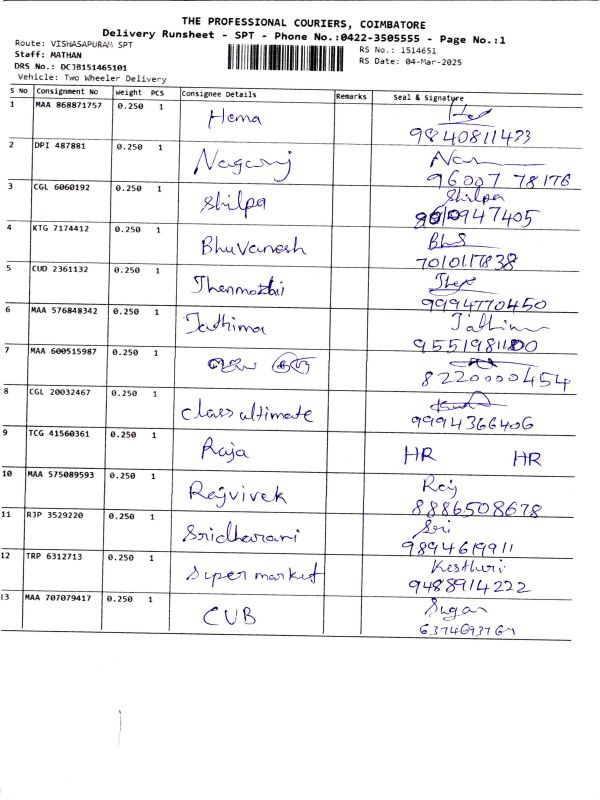 THE PROFESSIONAL COURIERS, COIMBATORE
Delivery Runsheet - SPT - Phone No.:0422-3505555 - Page No.:1
Route: VISHASAPURAM SPT
RS No.: 1514651
Staff: MATHAN
RS Date: 04-Mar-2025
DRS No.: DCJB151465101
Vehicle: Two Wheeler Delivery
S No Consignment No Weight PCS Consignee Details Remarks Seal & Signature
1 MAA 868871757 0.250 1 Hema
9840811473
2 DPI 487881 0.250 1 Nagaraj
96007 78176
3 CGL 6060192 0.250 1 Shilpa Shilpa
947405
4 KTG 7174412 0.250 1 Bhuvanesh
7010117838
5 CUD 2361132 0.250 1 Thenmozhi
9994770450
6 MAA 576848342 0.250 1 Jathima
7 MAA 600515987 0.250 1
8220000454
8 CGL 20032467 0.250 1 class ultimate
9994366406
9 TCG 41560361 0.250 1 Raja HR HR
10 MAA 575089593 0.250 1 Rajvivek Raj
8886508678
11 RJP 3529220 0.250 1 Sridharani Sri
9894619911
12 TRP 6312713 0.250 1 Super market Kesthuri
9488914222
13 MAA 707079417 0.250 1 CUB Sugan